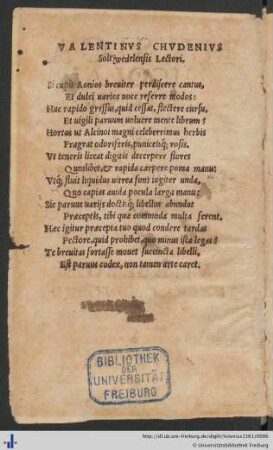 VALENTINVS CHVDENIVS
Soltquedelensis Lectori.
Si cupis Aonios breuiter perdiscere cantus,
Et dulci uarios uoce referre modos:
Huc rapido gressu, quid cessas, flectere cursu,
Et uigili paruum uoluere mente librum?
Hortus ut Alcinoi magni celeberrimus herbis
Fragrat odoriferis, puniceisq; rosis,
Vt teneris liceat digitis decerpere flores
Quoslibet, & rapida carpere poma manu:
Vtq; fluit liquidus uitrea fons iugiter unda,
Quo capias auida pocula larga manu:
Sic paruus uarijs doctisq; libellus abundat
Præceptis, tibi quæ commoda multa ferent.
Hæc igitur præcepta tuo quod condere tardas
Pectore, quid prohibet, quo minus ista legas?
Te breuitas fortasse mouet succincta libelli,
Est paruus codex, non tamen arte caret.
BIBLIOTHEK
DER
UNIVERSITÄT
FREIBURG
http://dl.ub.uni-freiburg.de/diglit/
© Universitätsbibliothek Freiburg